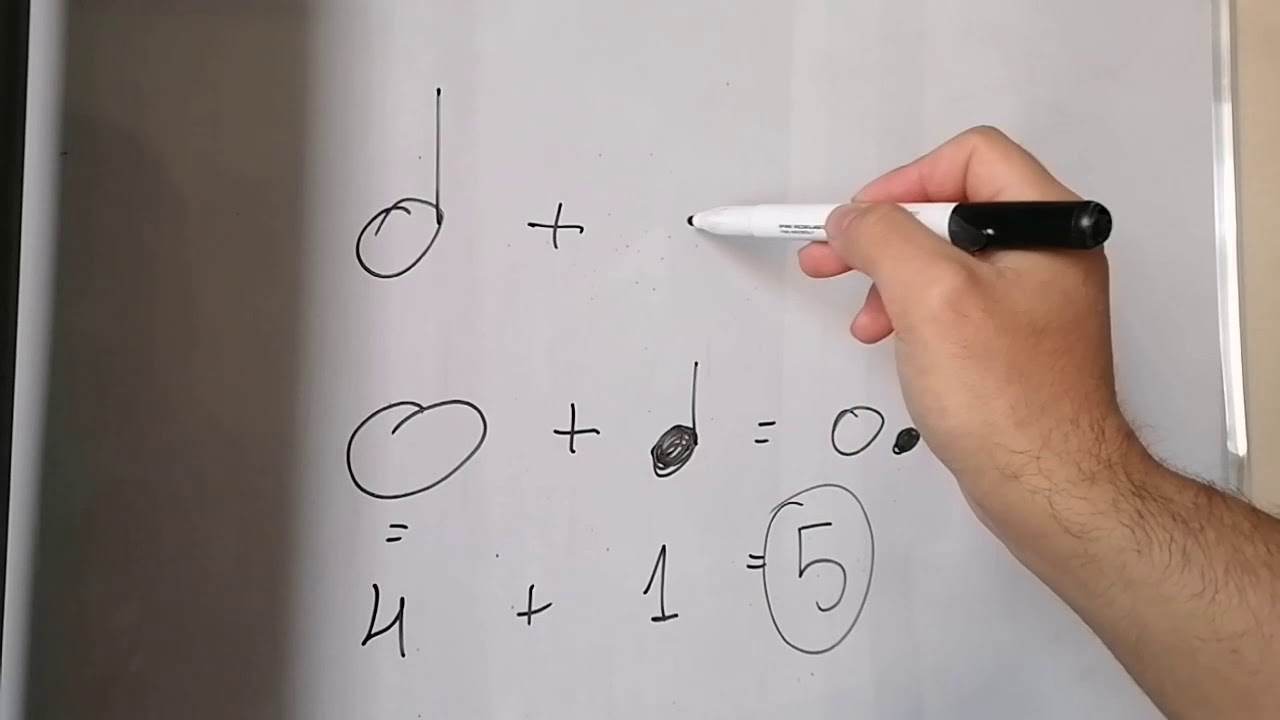 𝅗𝅥 +
𝅝 + ♩ = 𝅝.
=
4 + 1 = 5